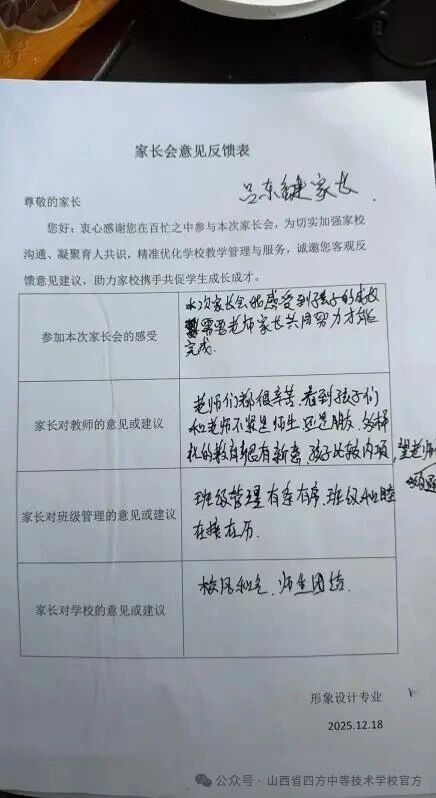 家长会意见反馈表
吕东键家长
尊敬的家长
您好：衷心感谢您在百忙之中参与本次家长会，为切实加强家校
沟通、凝聚育人共识，精准优化学校教学管理与服务，诚邀您客观反
馈意见建议，助力家校携手共促学生成长成才。
参加本次家长会的感受
本次家长会能感受到孩子的成长
需要老师家长共同努力才能
完成.
家长对教师的意见或建议
老师们都很辛苦.看到孩子们
和老师不只是师生还是朋友.
的教育都有新意.孩子比较内项,望老师
家长对班级管理的意见或建议
班级管理有条有序.班级和睦
家长对学校的意见或建议
校风和 .师生团结.
形象设计专业
2025.12.18
公众号 · 山西省四方中等技术学校官方